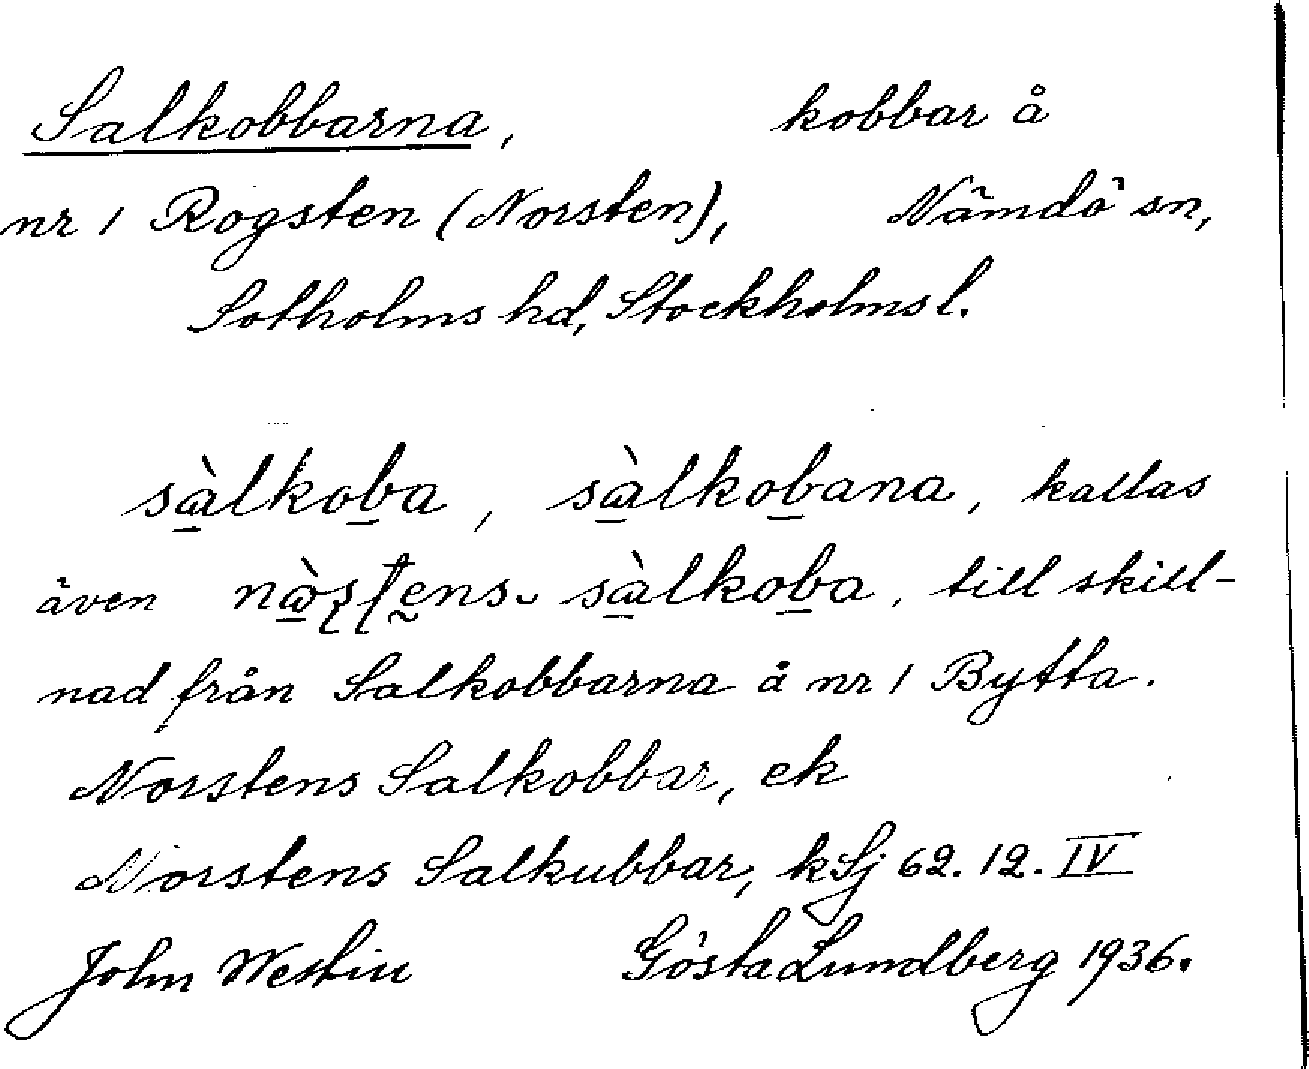 Salkobbarna, kobbar å
nr 1 Rogsten (Norsten), Nämdö sn,
Sotholms hd, Stockholms l.
sàlkoba, sàlkobana, kallas
även nòstens sàlkoba, till skill-
nad från Salkobbarna å nr 1 Bytta.
Norstens Salkobbar, ek
Norstens Salkubbar, kSj 62.12.IV
John Westin Gösta Lundberg 1936.